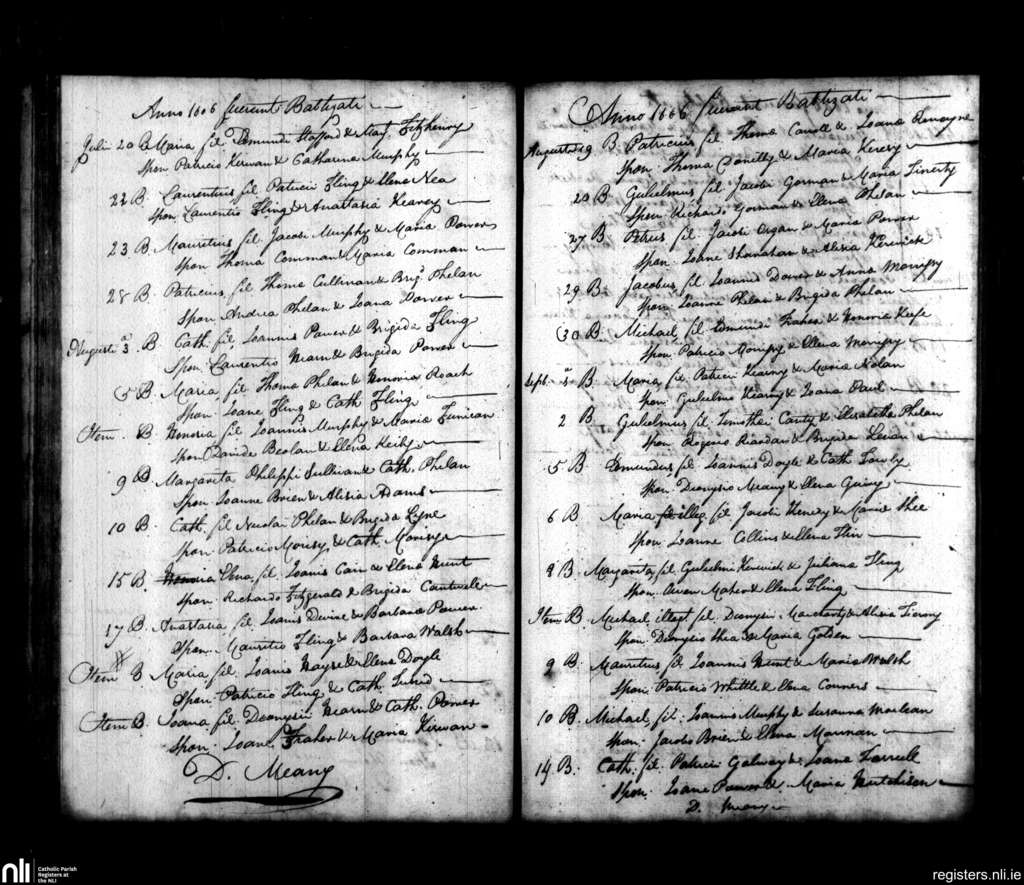 Anno 1806 fuerunt Battizati
Julii 20 B Maria fil Edmundi Stafford & Mary Fitzhenry
Spon Patricio Kirwan & Catharina Murphy
22 B. Laurentius fil Patricii Fling & Elena Nea
Spon Laurentio Fling & Anastasia Keavey
23 B. Mauritius fil Jacobi Murphy & Maria Power
Spon Thoma Comman & Maria Comman
28 B. Patricius fil Thoma Cullinan & Brigd Phelan
Spon Andrea Phelan & Joana Dower
Augusti a 3. B Cath. fil Joannis Power & Brigida Fling
Spon Laurentio Mearn & Brigida Power
5 B. Maria fil Thoma Phelan & Honoria Roach
Spon Joane Fling & Cath Fling
Item. B. Honoria fil Joannis Murphy & Maria Funican
Spon Davide Beolan & Elena Keily
9 B. Margarita Philippi Sullivan & Cath. Phelan
Spon Joanne Brien & Alisia Adams
10 B. Cath. fil Nicolai Phelan & Brigida Eyre
Spon Patricio Morisy & Cath Morisy
15 B. Honoria Elena fil. Joanis Cain & Elena Hunt
Spon. Richardo Fitzgerald & Brigida Cantwell
17 B. Anastasia fil Joanis Devine & Barbara Power.
Spon. Mauritio Fling & Barbara Walsh
Item B Maria fil. Joanis Hayse & Elena Doyle
Spon Patricio Fling & Cath.
Item B. Joana fil. Dionysii Mearn & Cath. Power
Spon. Joane Fraher & Maria Kirwan
D. Meany
Anno 1806 fuerunt Battizati
Augusti 19 B. Patricius fil Thoma Carroll & Joana
Spon. Thoma Conelly & Maria Keasy
20 B. Gulielmus fil Jacobi Gorman & Maria Finerty
Spon Richardo Gorman & Elena Phelan
27 B. Petrus fil Jacobi Organ & Maria Power
Spon. Joane Shanahan & Alisia Kerwick
29 B. Jacobus fil Joannis Dower & Anna Morispy
Spon Joanne Phelan & Brigida Phelan
30 B. Michael fil. Edmundi Fraher & Honoria Keefe
Spon Patricio Morispy & Elena Morispy
Sept. a 1 B. Maria fil Patricii Kearny & Maria Nolan
Spon Gulielmo Kearny & Joana Daul
2 B. Gulielmus fil Timothei Canty & Elisabetha Phelan
Spon Rogerio Riordan & Brigida
5 B Edmundus fil Joannis Doyle & Cath
Spon. Dionysio Meany & Elena Guiry
6 B Maria illeg. fil Jacobi Kenedy & Maria Shee
Spon Joanne Collins & Elena Flin
8 B. Margarita fil Gulielmi Kerwick & Juliana Fling
Spon. Owen Maher & Elena Fling
Item B. Michael illegt. fil. Dionysii Marchant & Alisia Tierny
Spon Dionysio Shea & Maria Golden
9 B. Mauritius fil Joannis Hunt & Maria Walsh
Spon Patricio Whittle & Elena Conners
10 B. Michael fil: Joannis Murphy & Susanna Maclean
Spon. Jacobo Brien & Elena Mannan
14 B. Cath. fil. Patricii Galway & Joana Farrell
Spon. Joane Power & Maria Hutchison
D. Meany
nli
Catholic Parish
Registers at
the NLI
registers.nli.ie